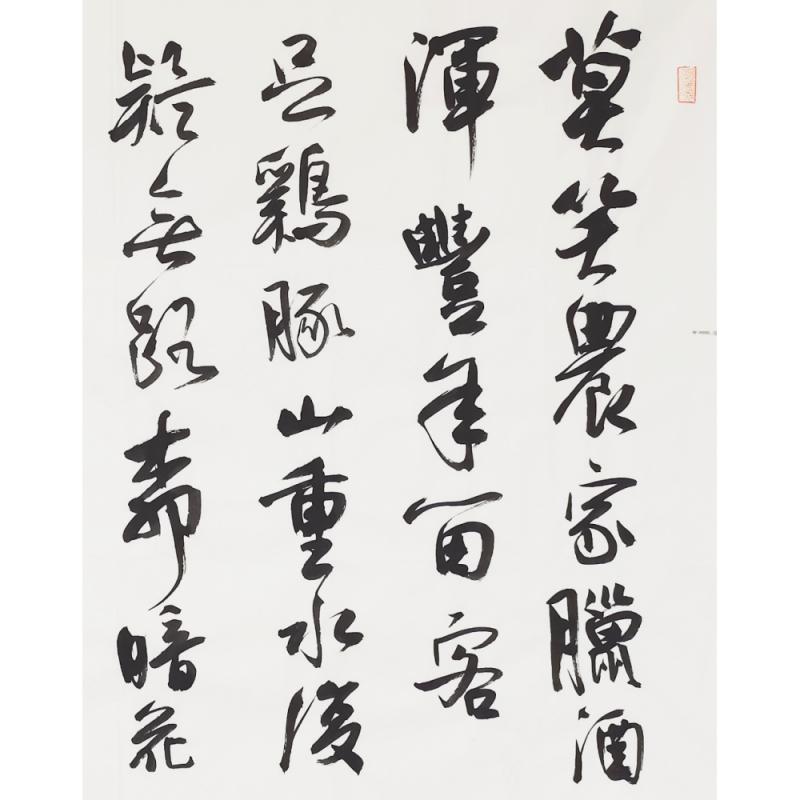 莫笑農家臘酒
渾豐年留客
足鷄豚山重水復
疑無路柳暗花